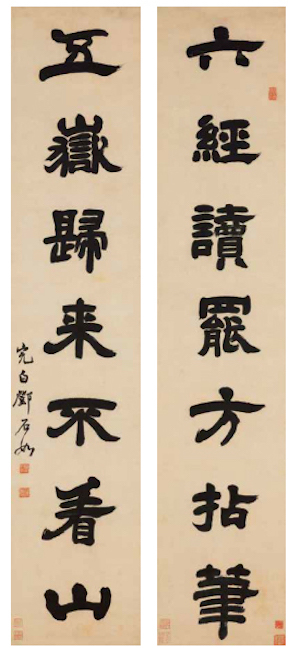 六經讀罷方拈筆
五嶽歸来不看山
完白鄧石如